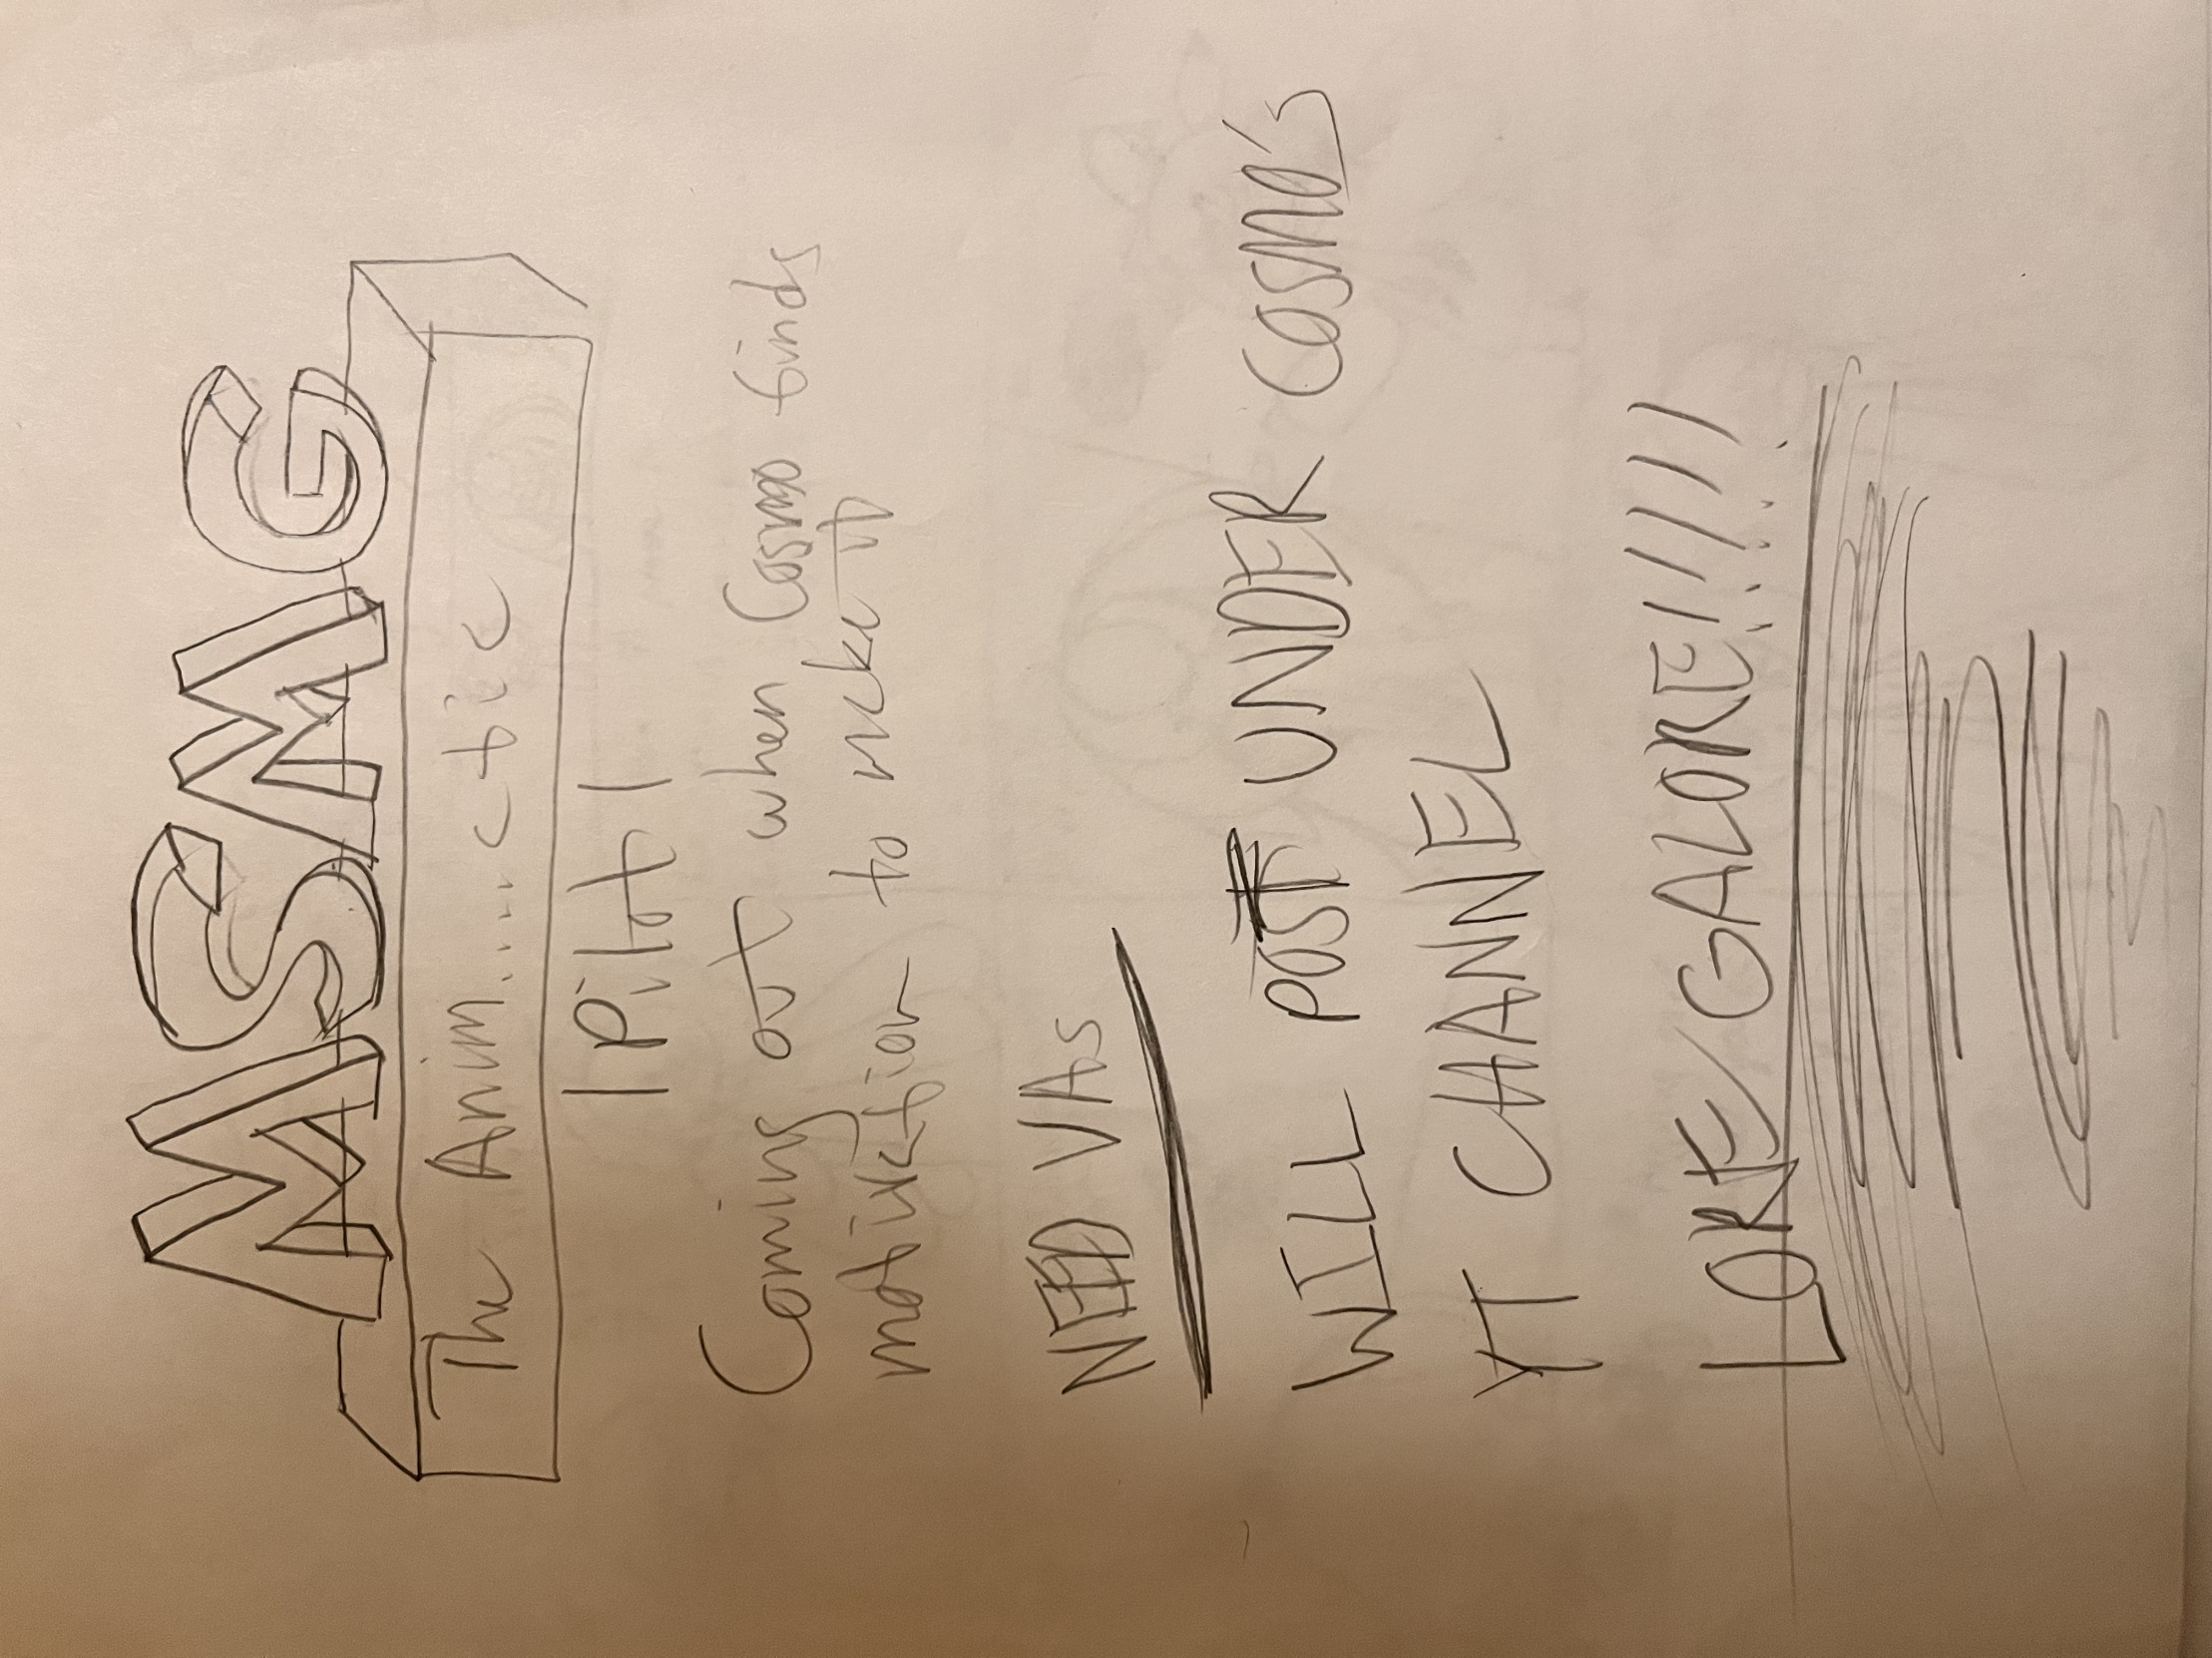 MSMG
The Anim.....ctic
|Pilot|
Coming out when Cosmo finds
motivation to make it
NEED VAs
WILL POST UNDER COSMO'S
YT CHANNEL
LORE GALORE!!!!!